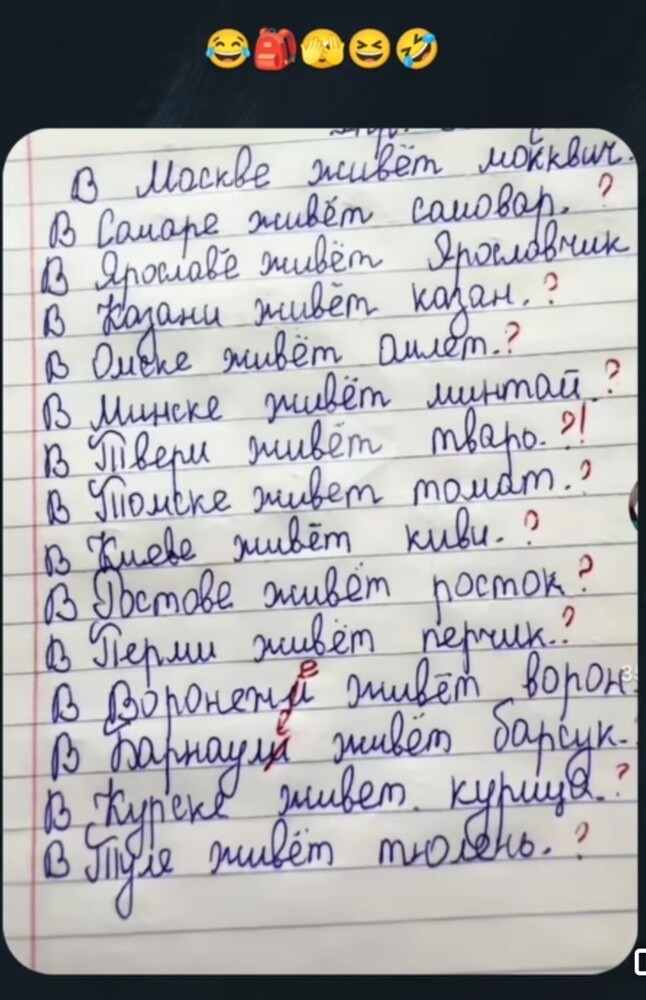 😂🎒🫣😆🤣
В Москве живёт москвич.
В Самаре живёт самовар. ?
В Ярославе живёт Ярославчик
В Казани живёт казан. ?
В Омске живёт омлет. ?
В Минске живёт минтай. ?
В Твери живёт тварь. ?!
В Томске живет томат. ?
В Киеве живёт киви. ?
В Ростове живёт росток. ?
В Перми живёт перчик. ?
е
В Воронежи живёт ворон
е
В Барнаули живёт барсук.
В Курске живет курица. ?
В Туле живёт тюлень. ?